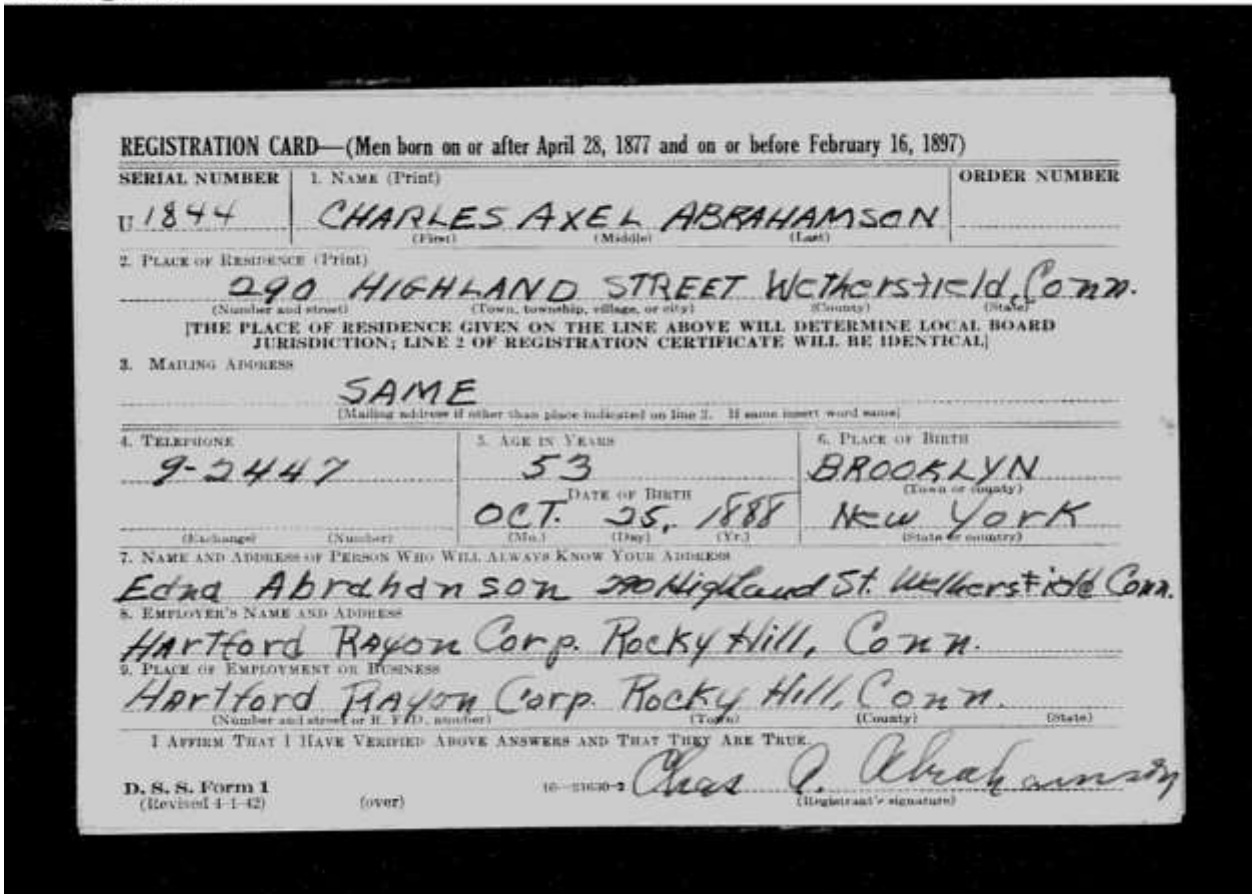 REGISTRATION CARD—(Men born on or after April 28, 1877 and on or before February 16, 1897)
SERIAL NUMBER 1. NAME (Print) ORDER NUMBER
U 1844 CHARLES AXEL ABRAHAMSON
(First) (Middle) (Last)
2. PLACE OF RESIDENCE (Print)
290 HIGHLAND STREET Wethersfield, Conn.
(Number and street) (Town, township, village, or city) (County) (State)
[THE PLACE OF RESIDENCE GIVEN ON THE LINE ABOVE WILL DETERMINE LOCAL BOARD
JURISDICTION; LINE 2 OF REGISTRATION CERTIFICATE WILL BE IDENTICAL]
3. MAILING ADDRESS
SAME
(Mailing address if other than place indicated on line 2. If same insert word same)
4. TELEPHONE 5. AGE IN YEARS 6. PLACE OF BIRTH
9-2447 53 BROOKLYN
(Town or county)
DATE OF BIRTH
OCT. 25, 1888 New York
(Exchange) (Number) (Mo.) (Day) (Yr.) (State or country)
7. NAME AND ADDRESS OF PERSON WHO WILL ALWAYS KNOW YOUR ADDRESS
Edna Abrahamson 290 Highland St. Wethersfield Conn.
8. EMPLOYER'S NAME AND ADDRESS
Hartford Rayon Corp. Rocky Hill, Conn.
9. PLACE OF EMPLOYMENT OR BUSINESS
Hartford Rayon Corp. Rocky Hill, Conn.
(Number and street or R. F. D. number) (Town) (County) (State)
I AFFIRM THAT I HAVE VERIFIED ABOVE ANSWERS AND THAT THEY ARE TRUE.
D. S. S. Form 1 16—21630-2 Chas A. Abrahamson
(Revised 4-1-42) (over) (Registrant's signature)